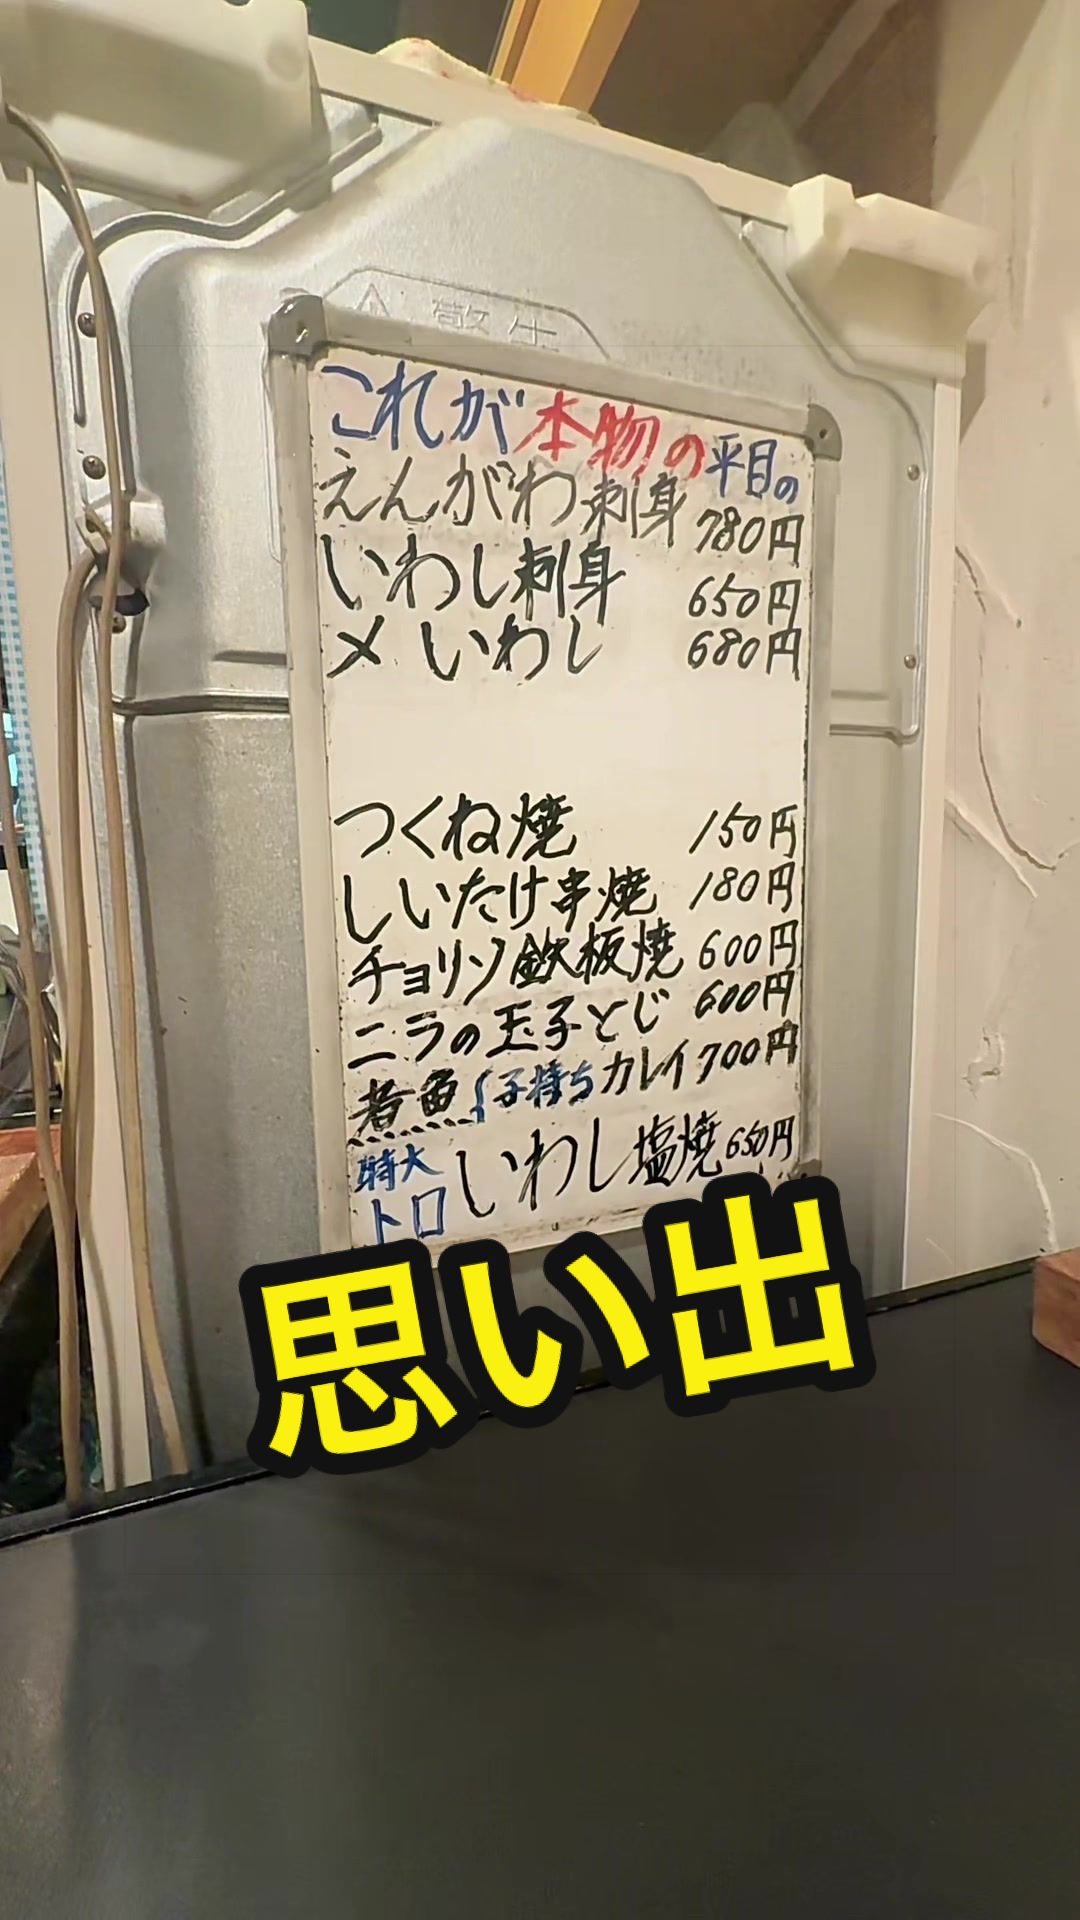 警告
これが本物の平目の
えんがわ刺身 780円
いわし刺身 650円
〆いわし 680円
つくね焼 150円
しいたけ串焼 180円
チョリソ鉄板焼 600円
ニラの玉子とじ 600円
煮魚{子持ちカレイ 700円
特大トロいわし塩焼 650円
思い出